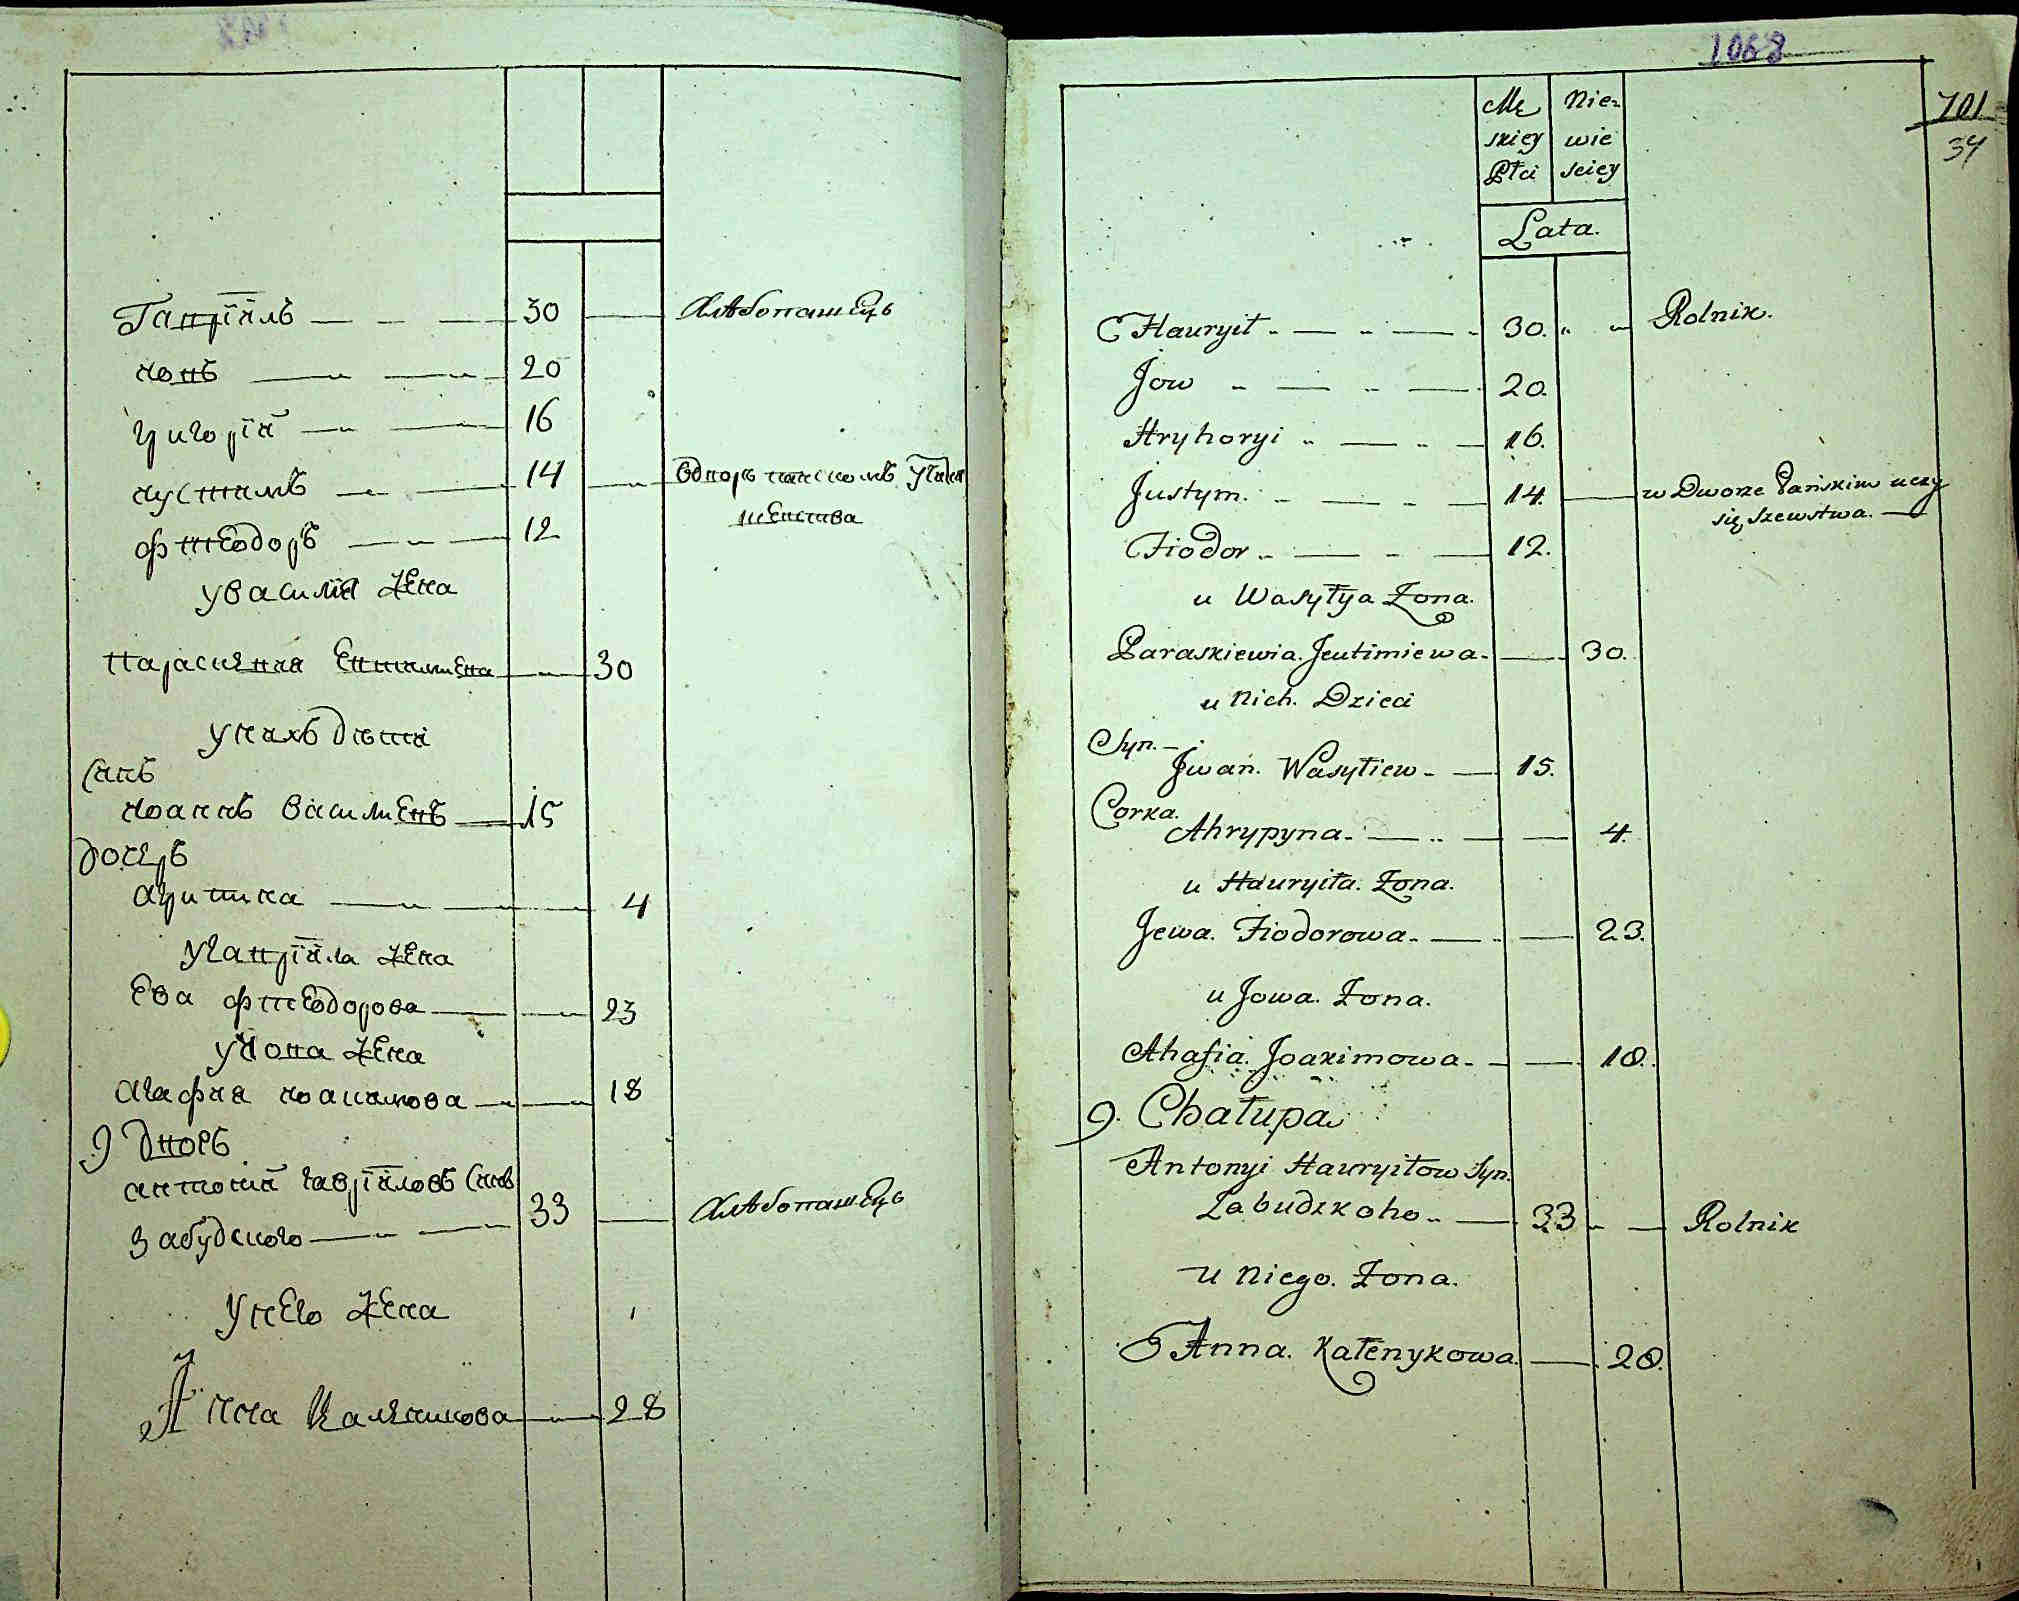 Гавріилъ 30 хлѣбопашецъ
иовъ 20
григорій 16
иустимъ 14 вдворѣ панскомъ учится
шевства
фтеодоръ 12
увасилія жена
параскевия Евтимиева 30
унихъ дѣти
Синъ
иоаннъ василиевъ 15
дочерь
агрипина 4
угавріила жена
Ева фтеодорова 23
уиова жена
агафия иоакимова 18
9 дворъ
антоній гавріиловъ Синъ
Забудского 33 хлѣбопашецъ
унего жена
Анна Каленикова 28
1068
701
34
Mę Nie=
skiey wie
Płci sciey
Lata.
Hauryił 30. Rolnik.
Jow 20.
Hryhoryi 16.
Justym. 14. w Dworze Pańskim uczy
się szewstwa.
Fiodor 12.
u Wasyłya Żona.
Paraskiewia. Jeutimiewa 30.
u Nich. Dzieci
Syn.
Jwan. Wasyliew 15.
Corka.
Ahrypyna 4.
u Hauryiła. Żona.
Jewa. Fiodorowa 23.
u Jowa. Żona.
Ahafia. Joakimowa 18.
9. Chałupa
Antonyi Hauryiłow Syn.
Zabudzkoho 33 Rolnik
u Niego. Żona.
Anna. Kałenykowa. 28.